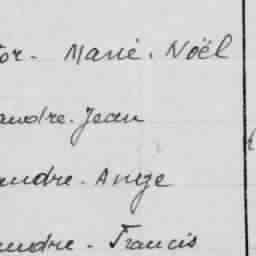 or. Marie. Noël
andre. Jean
andre. Ange
andre. Francis